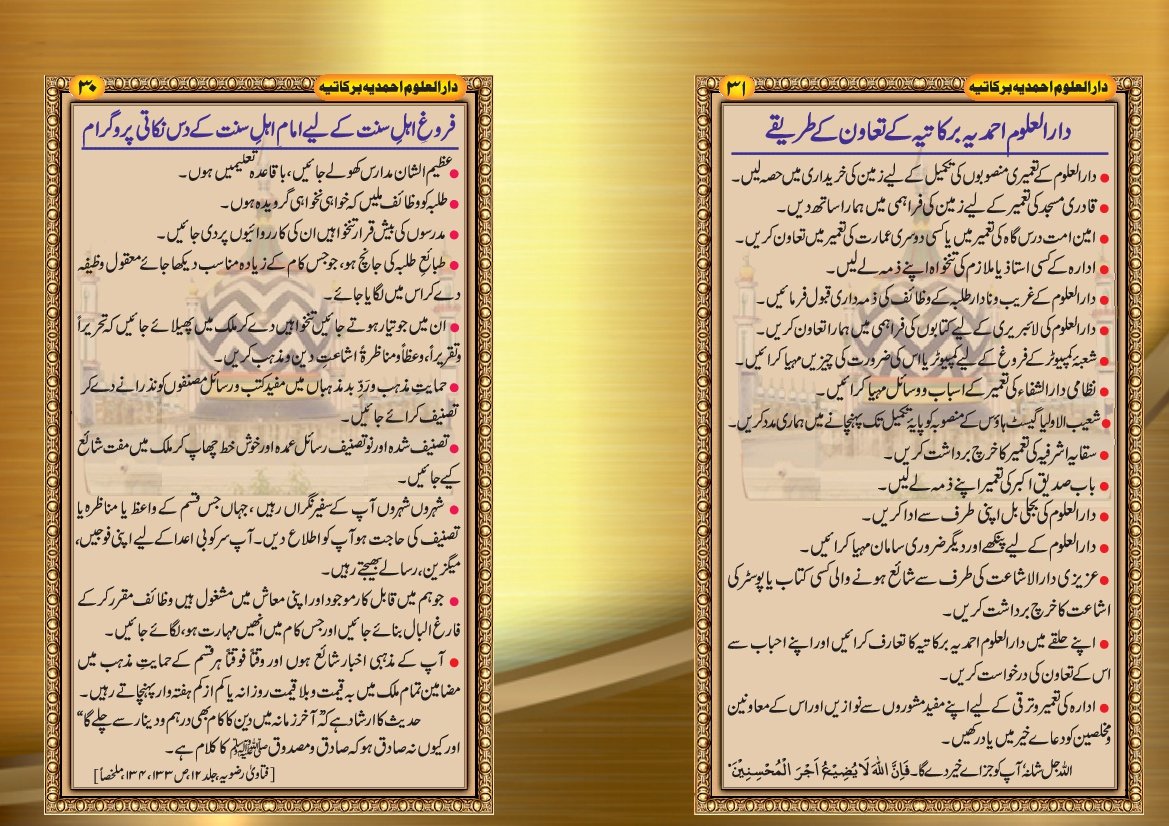 دارالعلوم احمدیہ برکاتیہ
۳۰
فروغِ اہلِ سنت کے لیے امام اہلِ سنت کے دس نکاتی پروگرام
● عظیم الشان مدارس کھولے جائیں، باقاعدہ تعلیمیں ہوں۔
● طلبہ کو وظائف ملیں کہ خواہی نخواہی گرویدہ ہوں۔
● مدرسوں کی بیش قرار تنخواہیں ان کی کارروائیوں پر دی جائیں۔
● طبائعِ طلبہ کی جانچ ہو، جو جس کام کے زیادہ مناسب دیکھا جائے معقول وظیفہ
دے کر اس میں لگایا جائے۔
● ان میں جو تیار ہوتے جائیں تنخواہیں دے کر ملک میں پھیلائے جائیں کہ تحریراً
وتقریراً، وعظاً ومناظرۃً اشاعتِ دین و مذہب کریں۔
● حمایتِ مذہب و رَدِّ بد مذہباں میں مفید کتب و رسائل مصنفوں کو نذرانے دے کر
تصنیف کرائے جائیں۔
● تصنیف شدہ اور نو تصنیف رسائل عمدہ اور خوش خط چھاپ کر ملک میں مفت شائع
کیے جائیں۔
● شہروں شہروں آپ کے سفیر نگراں رہیں، جہاں جس قسم کے واعظ یا مناظرہ یا
تصنیف کی حاجت ہو آپ کو اطلاع دیں۔ آپ سرکوبی اعدا کے لیے اپنی فوجیں،
میگزین، رسالے بھیجتے رہیں۔
● جو ہم میں قابل کار موجود اور اپنی معاش میں مشغول ہیں وظائف مقرر کر کے
فارغ البال بنائے جائیں اور جس کام میں انھیں مہارت ہو، لگائے جائیں۔
● آپ کے مذہبی اخبار شائع ہوں اور وقتاً فوقتاً ہر قسم کے حمایتِ مذہب میں
مضامین تمام ملک میں بہ قیمت و بلا قیمت روزانہ یا کم از کم ہفتہ وار پہنچاتے رہیں۔
حدیث کا ارشاد ہے کہ ”آخر زمانہ میں دین کا کام بھی درہم و دینار سے چلے گا“
اور کیوں نہ صادق ہو کہ صادق و مصدوق ﷺ کا کلام ہے۔
[فتاویٰ رضویہ، جلد ۱۲، ص ۱۳۳، ۱۳۴، ملخصاً]
دارالعلوم احمدیہ برکاتیہ
۳۱
دارالعلوم احمدیہ برکاتیہ کے تعاون کے طریقے
● دارالعلوم کے تعمیری منصوبوں کی تکمیل کے لیے زمین کی خریداری میں حصہ لیں۔
● قادری مسجد کی تعمیر کے لیے زمین کی فراہمی میں ہمارا ساتھ دیں۔
● امین امت درس گاہ کی تعمیر میں یا کسی دوسری عمارت کی تعمیر میں تعاون کریں۔
● ادارہ کے کسی استاذ یا ملازم کی تنخواہ اپنے ذمہ لے لیں۔
● دارالعلوم کے غریب و نادار طلبہ کے وظائف کی ذمہ داری قبول فرمائیں۔
● دارالعلوم کی لائبریری کے لیے کتابوں کی فراہمی میں ہمارا تعاون کریں۔
● شعبۂ کمپیوٹر کے فروغ کے لیے کمپیوٹر یا اس کی ضرورت کی چیزیں مہیا کرائیں۔
● نظامی دارالشفاء کی تعمیر کے اسباب و وسائل مہیا کرائیں۔
● شعیب الاولیا گیسٹ ہاؤس کے منصوبہ کو پایۂ تکمیل تک پہنچانے میں ہماری مدد کریں۔
● سقایہ اشرفیہ کی تعمیر کا خرچ برداشت کریں۔
● باب صدیق اکبر کی تعمیر اپنے ذمہ لے لیں۔
● دارالعلوم کی بجلی بل اپنی طرف سے ادا کریں۔
● دارالعلوم کے لیے پنکھے اور دیگر ضروری سامان مہیا کرائیں۔
● عزیزی دارالاشاعت کی طرف سے شائع ہونے والی کسی کتاب یا پوسٹر کی
اشاعت کا خرچ برداشت کریں۔
● اپنے حلقے میں دارالعلوم احمدیہ برکاتیہ کا تعارف کرائیں اور اپنے احباب سے
اس کے تعاون کی درخواست کریں۔
● ادارہ کی تعمیر و ترقی کے لیے اپنے مفید مشوروں سے نوازیں اور اس کے معاونین
و مخلصین کو دعاے خیر میں یاد رکھیں۔
اللہ جل شانہٗ آپ کو جزاے خیر دے گا۔ فَاِنَّ اللّٰہَ لَا یُضِیْعُ اَجْرَ الْمُحْسِنِیْنَ۔